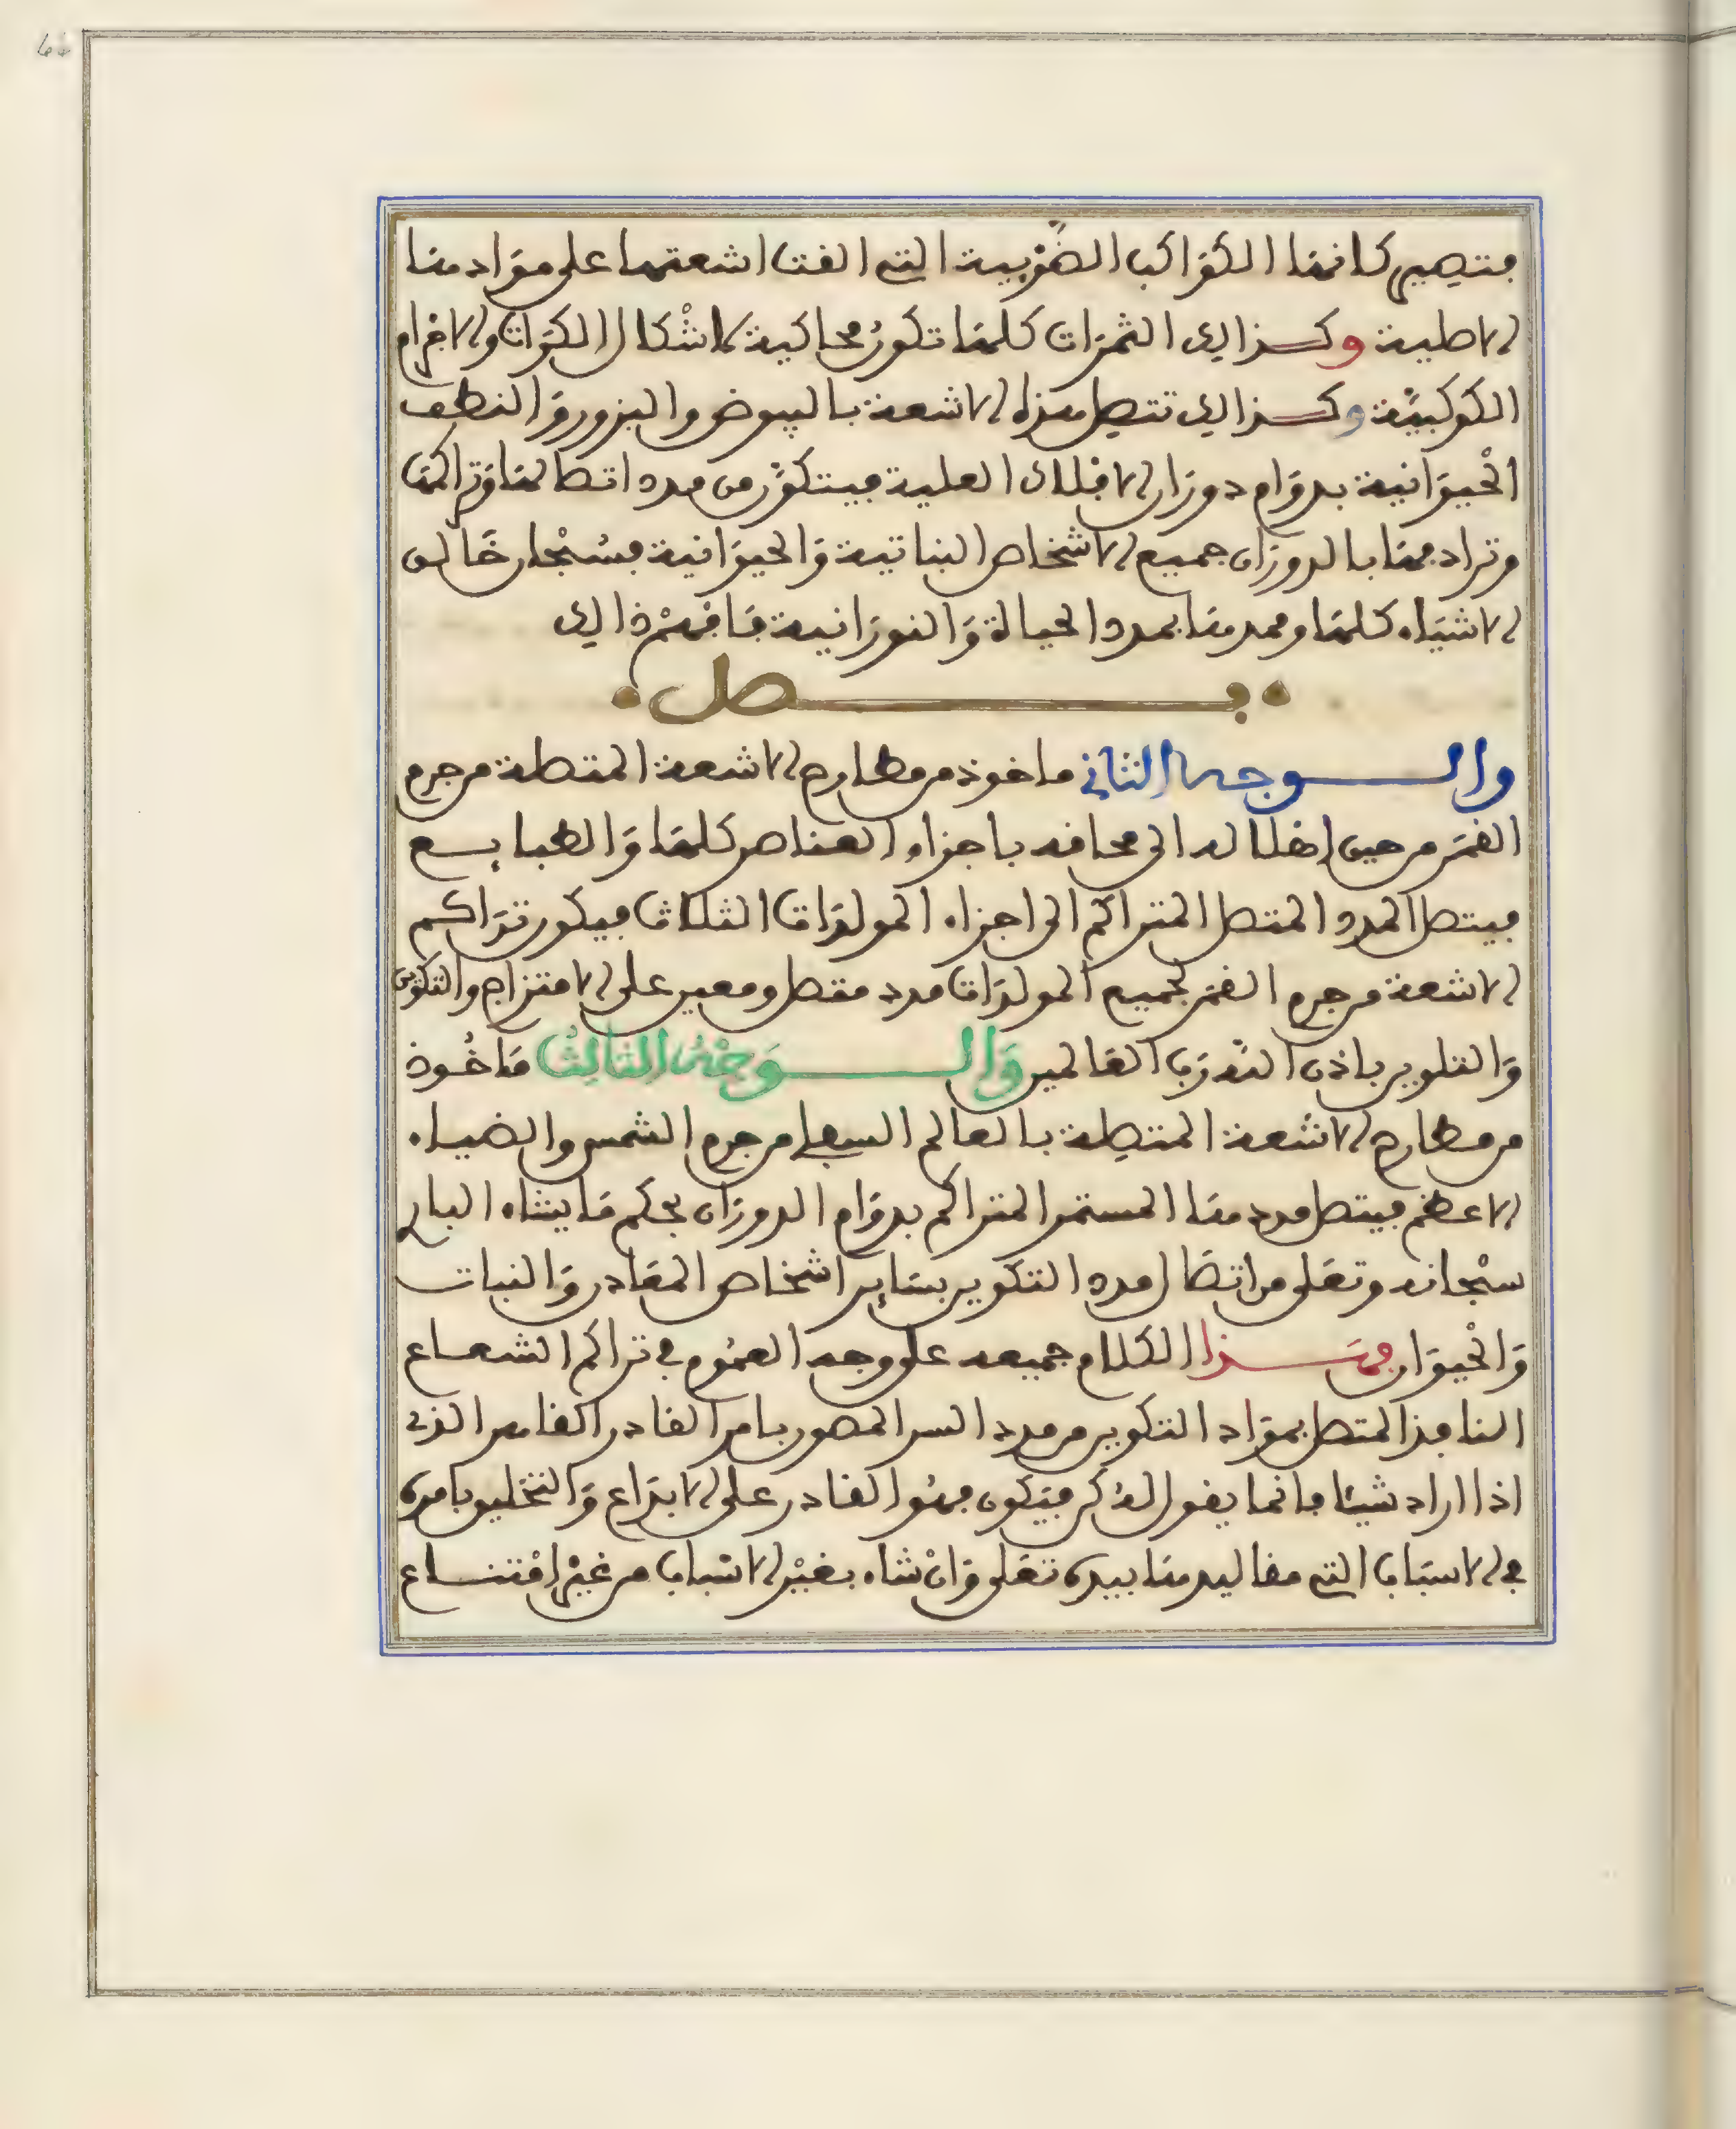 فتصير كانها الكواكب الضوئية التي القت اشعتها على موادها
الاصلية وكذالك الثمرات كلها تكون محاكية لاشكال الكرات والاجرام
الكوكبية وكذالك تتصل هذه الاشعة بالبيوض والبزور والنطف
الحيوانية بدوام دوران الافلاك العلية فيتكون من مدد اتصالها وتراكمها
وترادفها بالدوران جميع الاشخاص النباتية والحيوانية فسبحان خالق
الاشياء كلها وممدها بمدد الحياة والنورانية فافهم ذالك
فصل
والوجه الثاني ماخوذ من مطارح الاشعة المتصلة من جرم
القمر من حين اهلاله الى محاقه باجزاء العناصر كلها والطبايع
فيتصل المدد المتصل المتراكم الى اجزاء المولدات الثلاث فيكون تراكم
الاشعة من جرم القمر لجميع المولدات مدد متصل ومعين على الامتزاج والتكوين
والتلوين باذن الله رب العالمين والوجه الثالث ماخوذ
من مطارح الاشعة المتصلة بالعالم السفلي من جرم الشمس والضياء
الاعظم فيتصل مددها المستمر المتراكم بدوام الدوران بحكم ما يشاء الباري
سبحانه وتعلى من اتصال مدد التكوين بساير اشخاص المعادن والنبات
والحيوان فهذا الكلام جميعه على وجه العموم في تراكم الشعاع
النافذ المتصل بمواد التكوين من مدد السر المصور بامر القادر القاهر الذي
اذا اراد شيئا فانما يقول له كن فيكون فهو القادر على الابداع والتخليق بامره
في الاسباب التي مقاليدها بيده تعلى وان شاء بغير الاسباب من غير امتناع